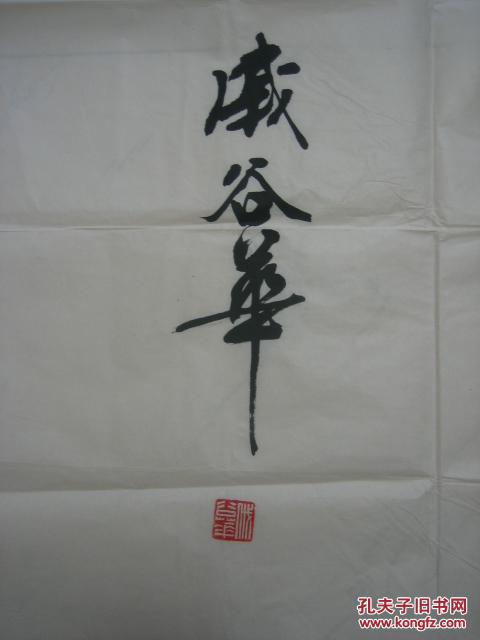 戚谷華
孔夫子旧书网
www.kongfz.com